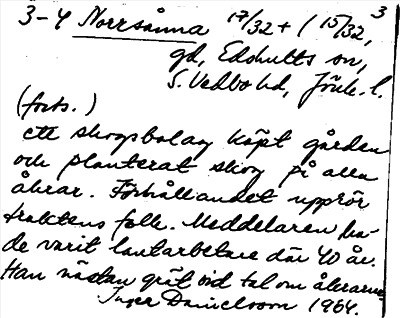 3-4 Norrsånna 17/32 + (15/32, 3
gd, Edshults sn,
S. Vedbo hd, Jönk. l.
(forts.)
ett skogsbolag köpt gården
och planterat skog på alla
åkrar. Förhållandet upprör
traktens folk. Meddelaren ha-
de varit lantarbetare där 40 år.
Han nästan grät vid tal om åkrarna.
Inger Danielsson 1964.